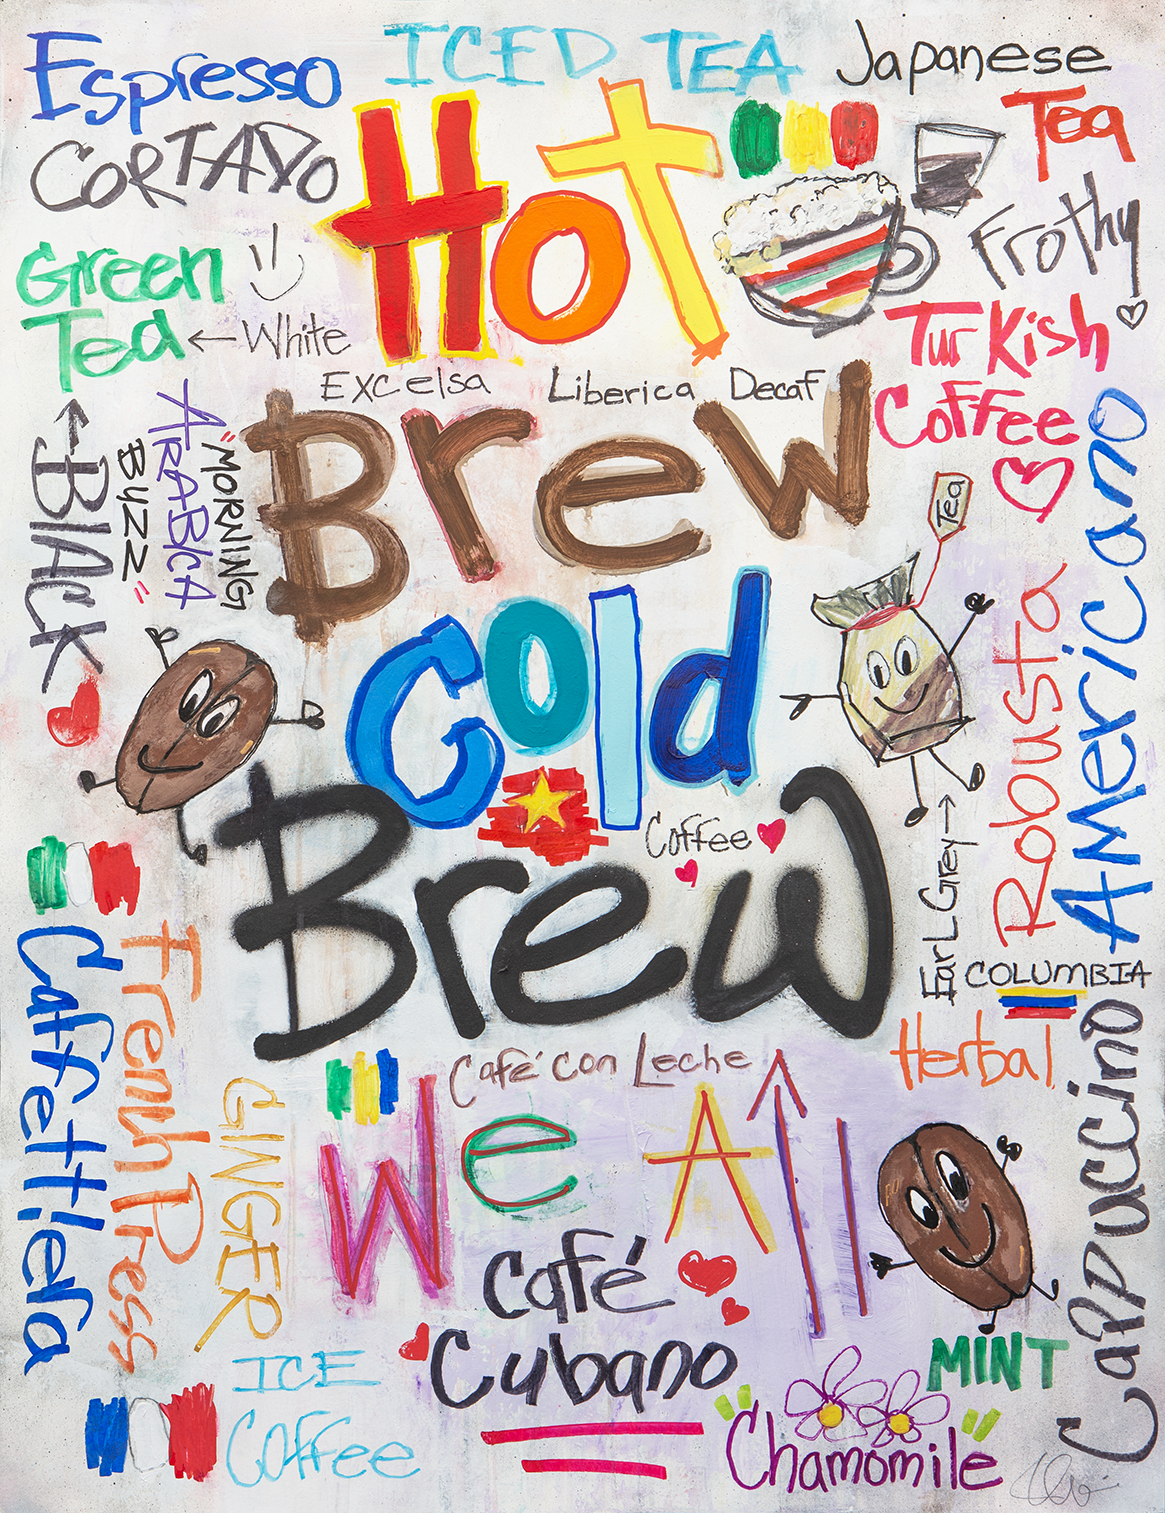 Espresso
ICED TEA
Japanese
Tea
CORTADO
HOt
Frothy
Green
Tea
← White
TurKish
Coffee
Excelsa Liberica Decaf
Brew
←BlAcK
"MORNING
BUZZ"
ARABICA
Tea
Americano
Robusta
Cold
Coffee
Brew
EarL Grey →
COLUMBIA
Caffettiera
Frenh Press
GINGER
Café con Leche
Herbal
We All
Cappuccino
Café
Cubano
MINT
ICE
Coffee
Chamomile